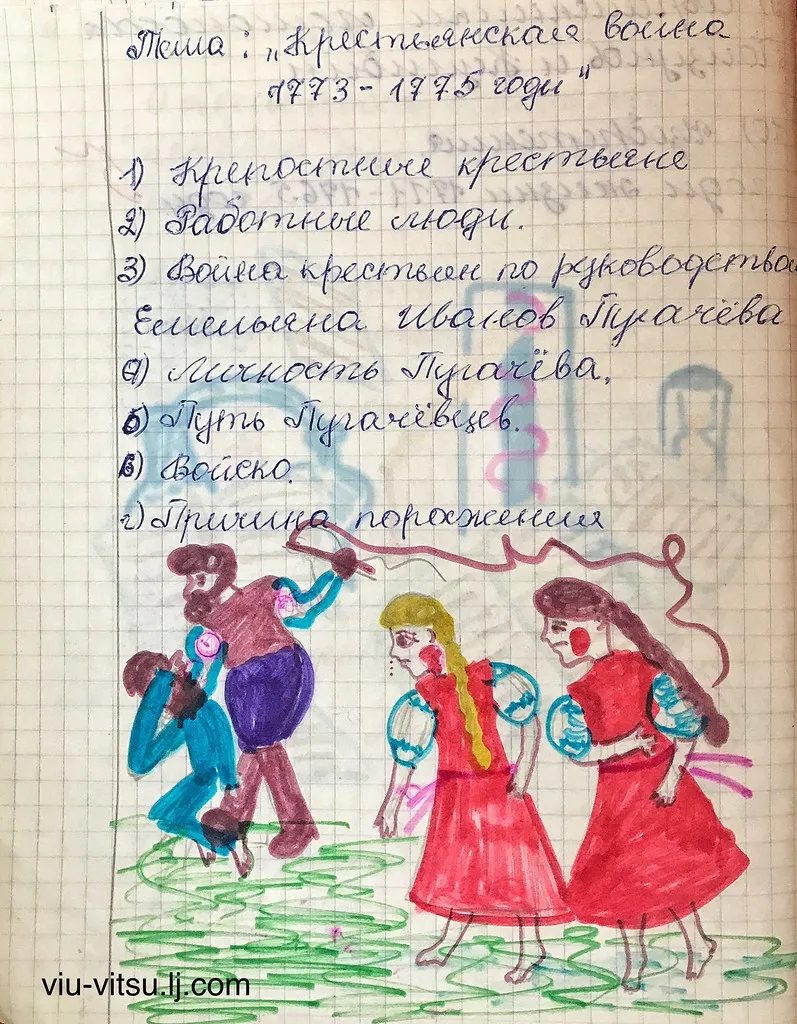 Тема: „Крестьянская война
1773 - 1775 годы"
1) Крепостные крестьяне
2) Работные люди.
3) Война крестьян по руководства
Емельяна Иванов Пугачёва
а) Личность Пугачёва.
б) Путь Пугачёвцев.
в) Войско.
г) Причина поражения
viu-vitsu.lj.com